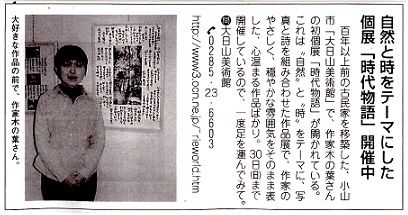 自然と時をテーマにした
個展「時代物語」開催中
百年以上前の古民家を移築した、小山
市「大日山美術館」で、作家木の葉さん
の初個展「時代物語」が開かれている。
これは〝自然〟と〝時〟をテーマに、写
真と詩を組み合わせた作品展で、作家の
やさしく、穏やかな雰囲気をそのまま表
した、心温まる作品ばかり。30日(日)まで
開催しているので、一度足を運んでみて。
問大日山美術館
☎0285・23・6603
http://www3.ocn.ne.jp/~rieworld.htm
大好きな作品の前で、作家木の葉さん。